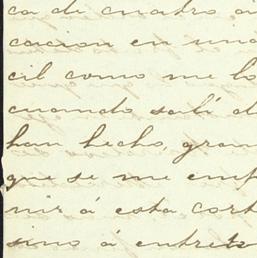 ca de cuatro a
cacion en una
cil como me lo
cuando salí d
han hecho, gran
que se me emp
nir á esta cort
sino á entrete